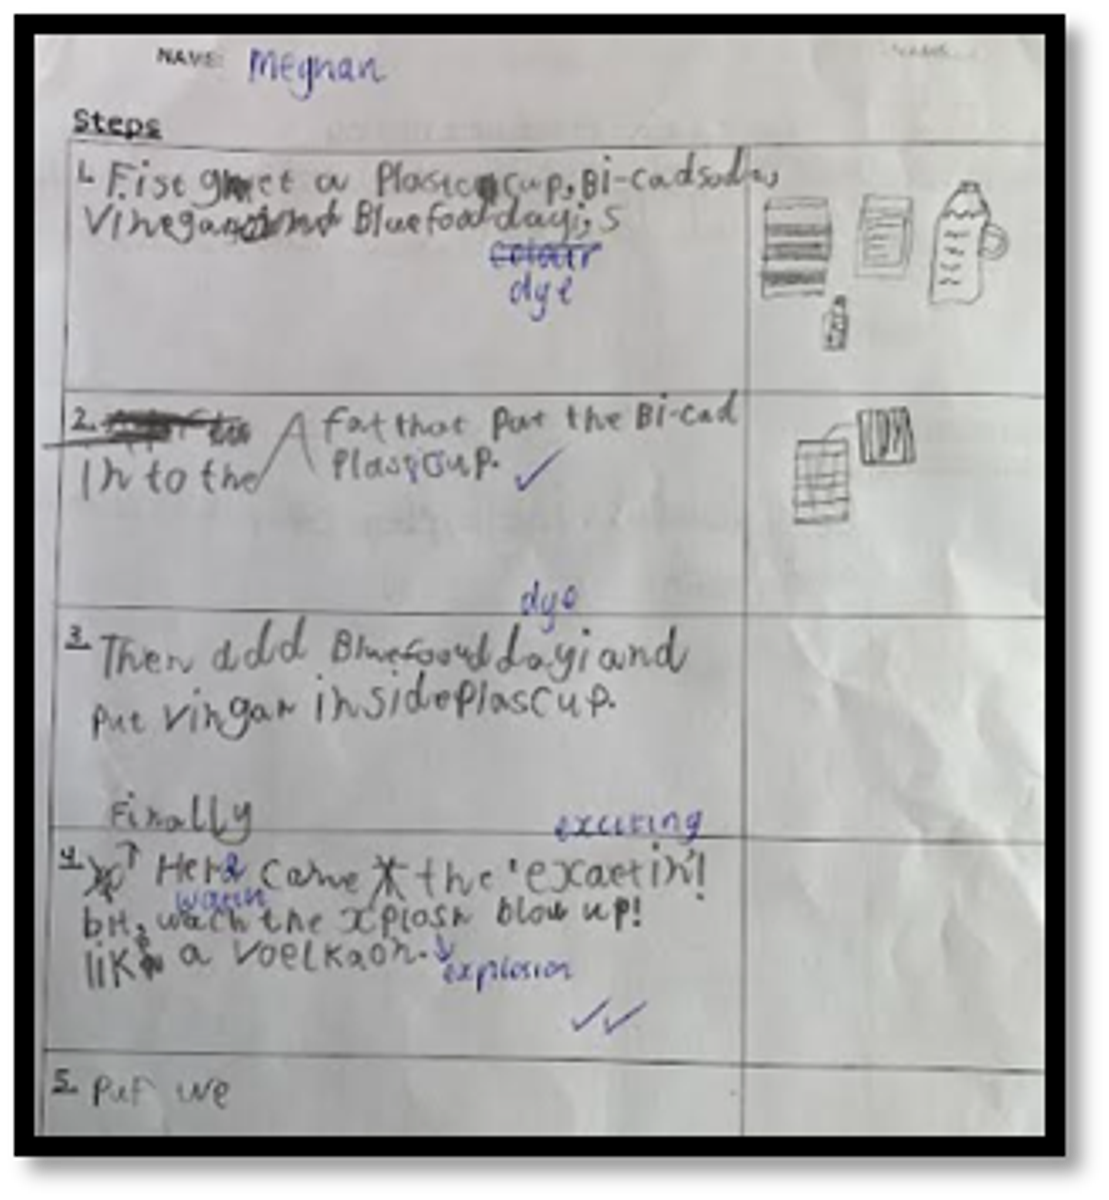 NAME: Meghan
Steps
1. Fist get a Plastc cup, Bi-cad soda,
Vinegar and Blue food dayi,s
colour
dye
2. fat that Put the Bi-cad
In to the Plasticup.
dye
3. Then add Blue food dayi and
Put vingar inside Plascup.
Finally
exciting
4. Here came the 'exaetin'!
watch
bit, wach the xplosn blow up!
lik a voelkaon.
explosion
5. Put we